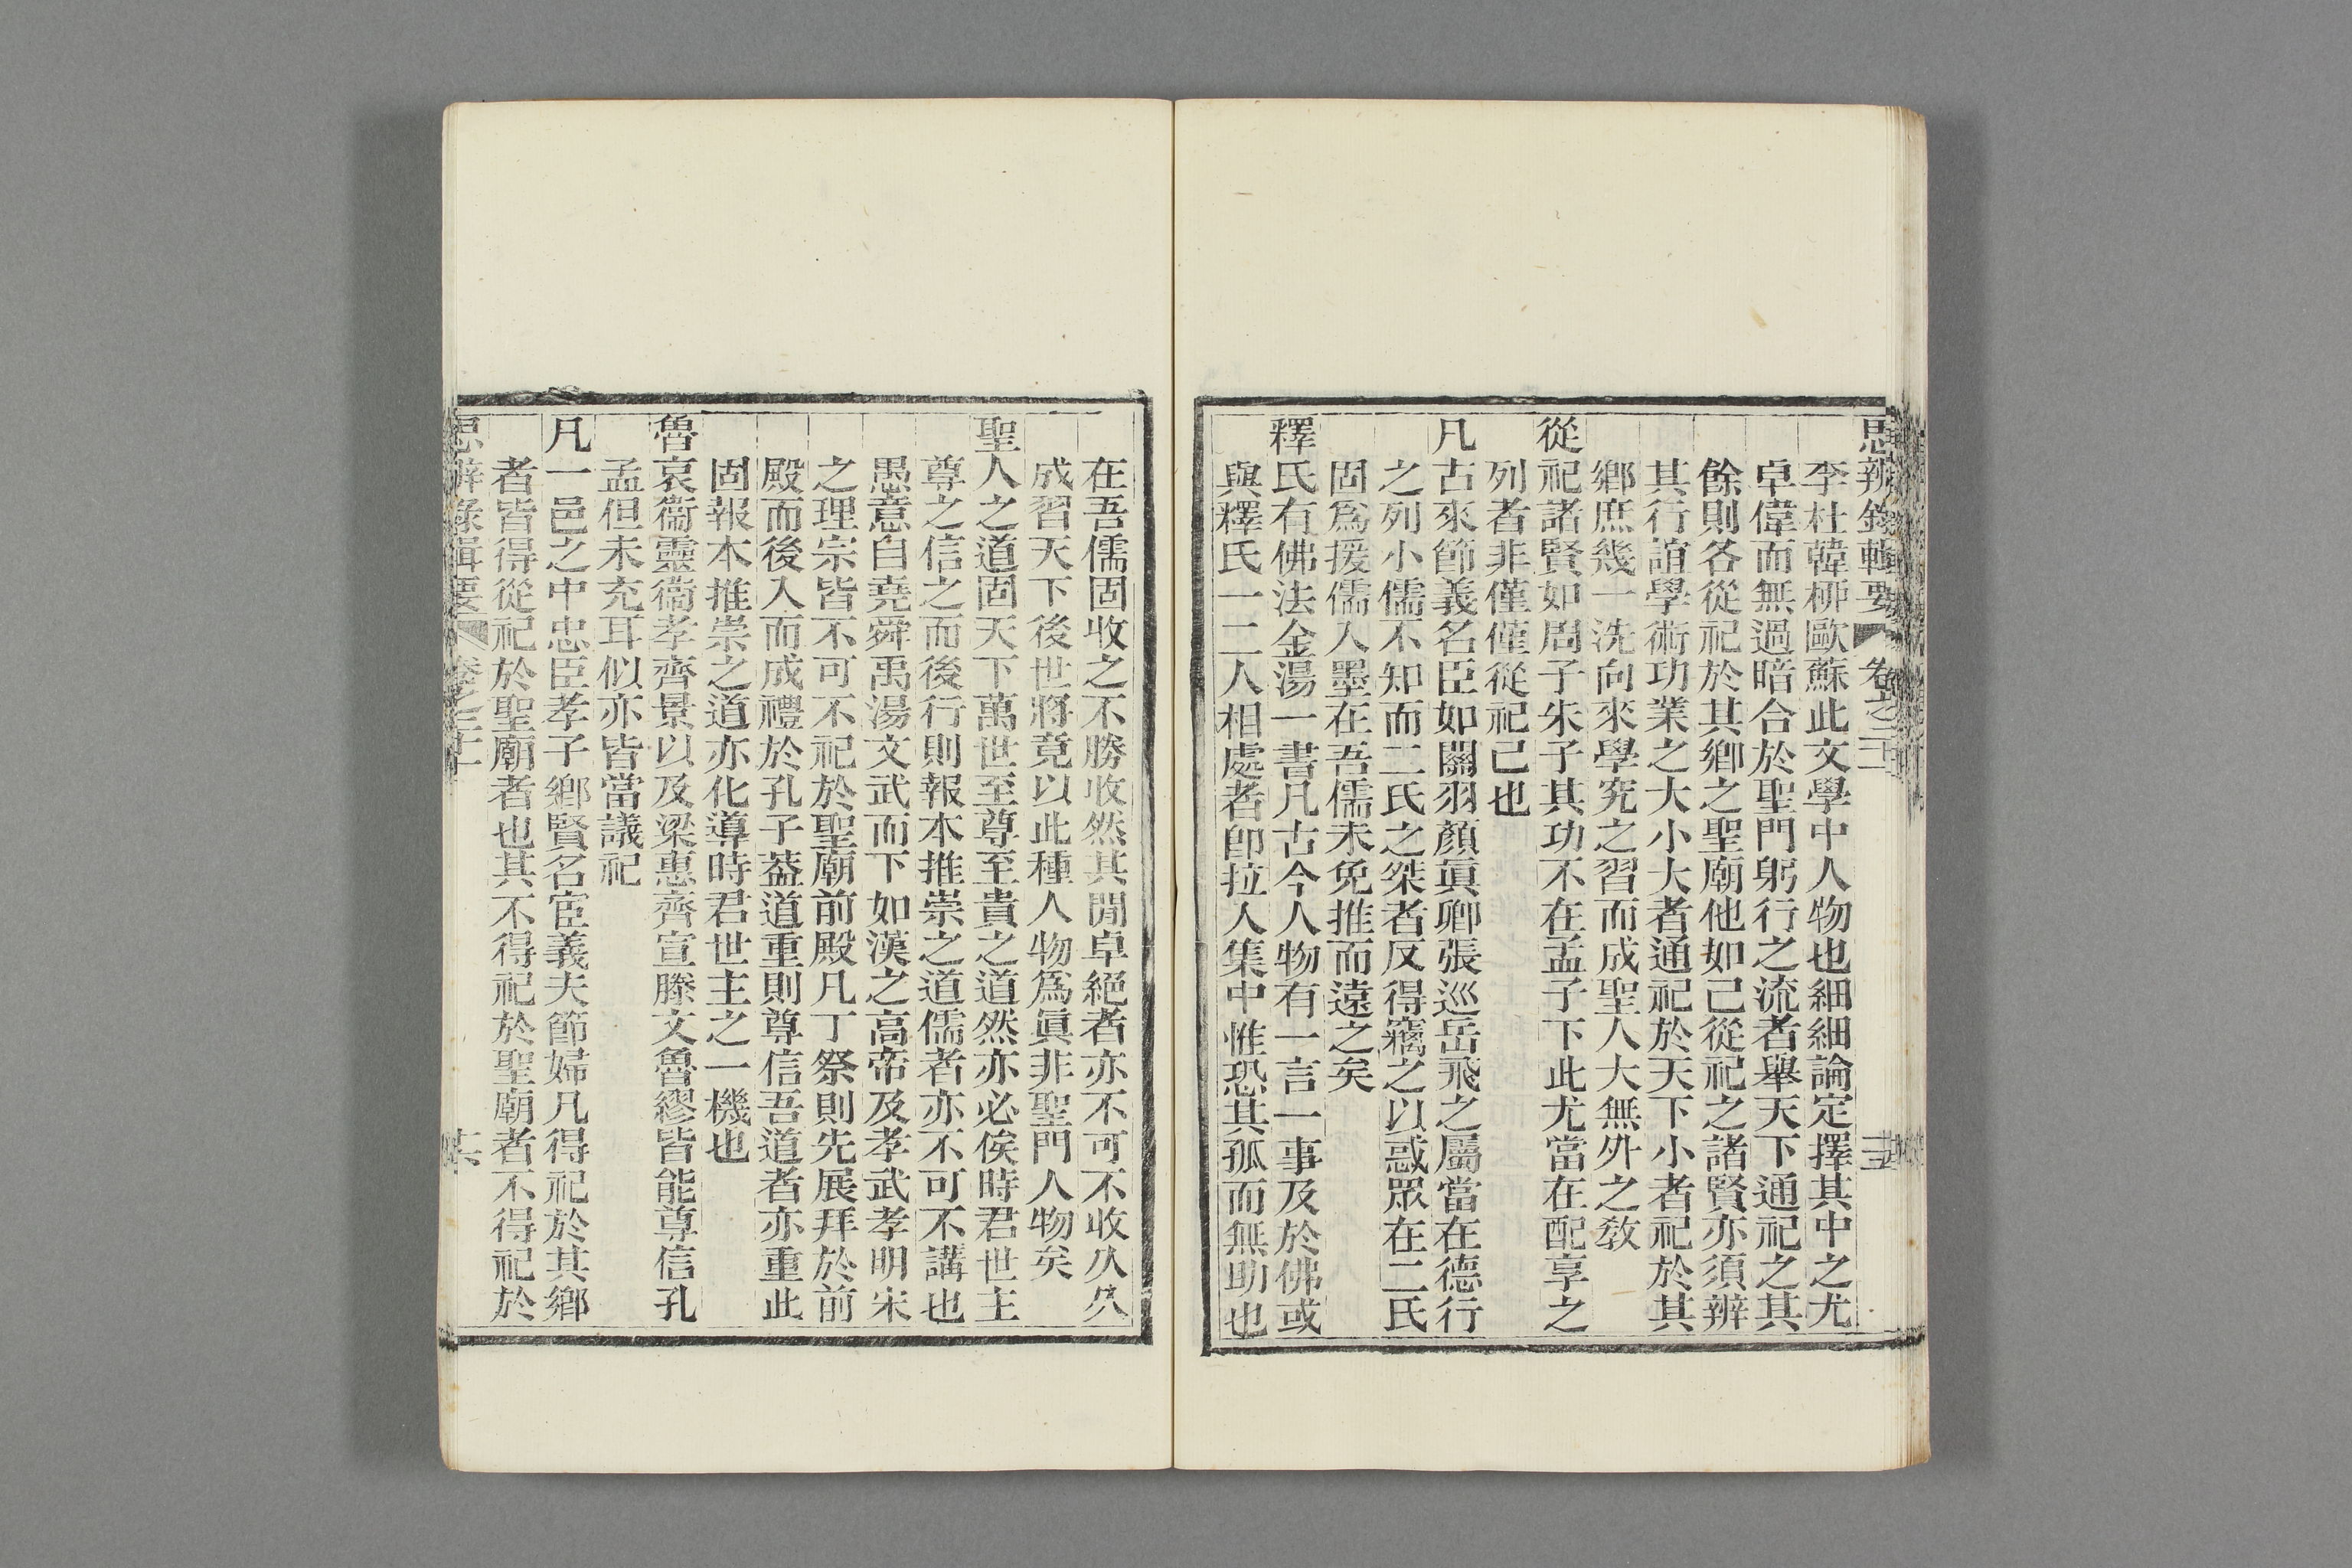 思辨錄輯要 卷之二十
李杜韓柳歐蘇此文學中人物也細細論定擇其中之尤
卓偉而無過暗合於聖門躬行之流者舉天下通祀之其
餘則各從祀於其鄉之聖廟他如已從祀之諸賢亦須辨
其行誼學術功業之大小大者通祀於天下小者祀於其
鄉庶幾一洗向來學究之習而成聖人大無外之敎
從祀諸賢如周子朱子其功不在孟子下此尤當在配享之
列者非僅僅從祀已也
凡古來節義名臣如關羽顏眞卿張巡岳飛之屬當在德行
之列小儒不知而二氏之桀者反得竊之以惑眾在二氏
固爲援儒入墨在吾儒未免推而遠之矣
釋氏有佛法金湯一書凡古今人物有一言一事及於佛或
與釋氏一二人相處者卽拉人集中惟恐其孤而無助也
在吾儒固收之不勝收然其閒卓絕者亦不可不收久久
成習天下後世將竟以此種人物爲眞非聖門人物矣
聖人之道固天下萬世至尊至貴之道然亦必俟時君世主
尊之信之而後行則報本推崇之道儒者亦不可不講也
愚意自堯舜禹湯文武而下如漢之高帝及孝武孝明宋
之理宗皆不可不祀於聖廟前殿凡丁祭則先展拜於前
殿而後入而成禮於孔子葢道重則尊信吾道者亦重此
固報本推崇之道亦化導時君世主之一機也
魯哀衞靈衞孝齊景以及梁惠齊宣滕文魯繆皆能尊信孔
孟但未充耳似亦皆當議祀
凡一邑之中忠臣孝子鄉賢名宦義夫節婦凡得祀於其鄉
者皆得從祀於聖廟者也其不得祀於聖廟者不得祀於
思辨錄輯要 卷之二十 十六